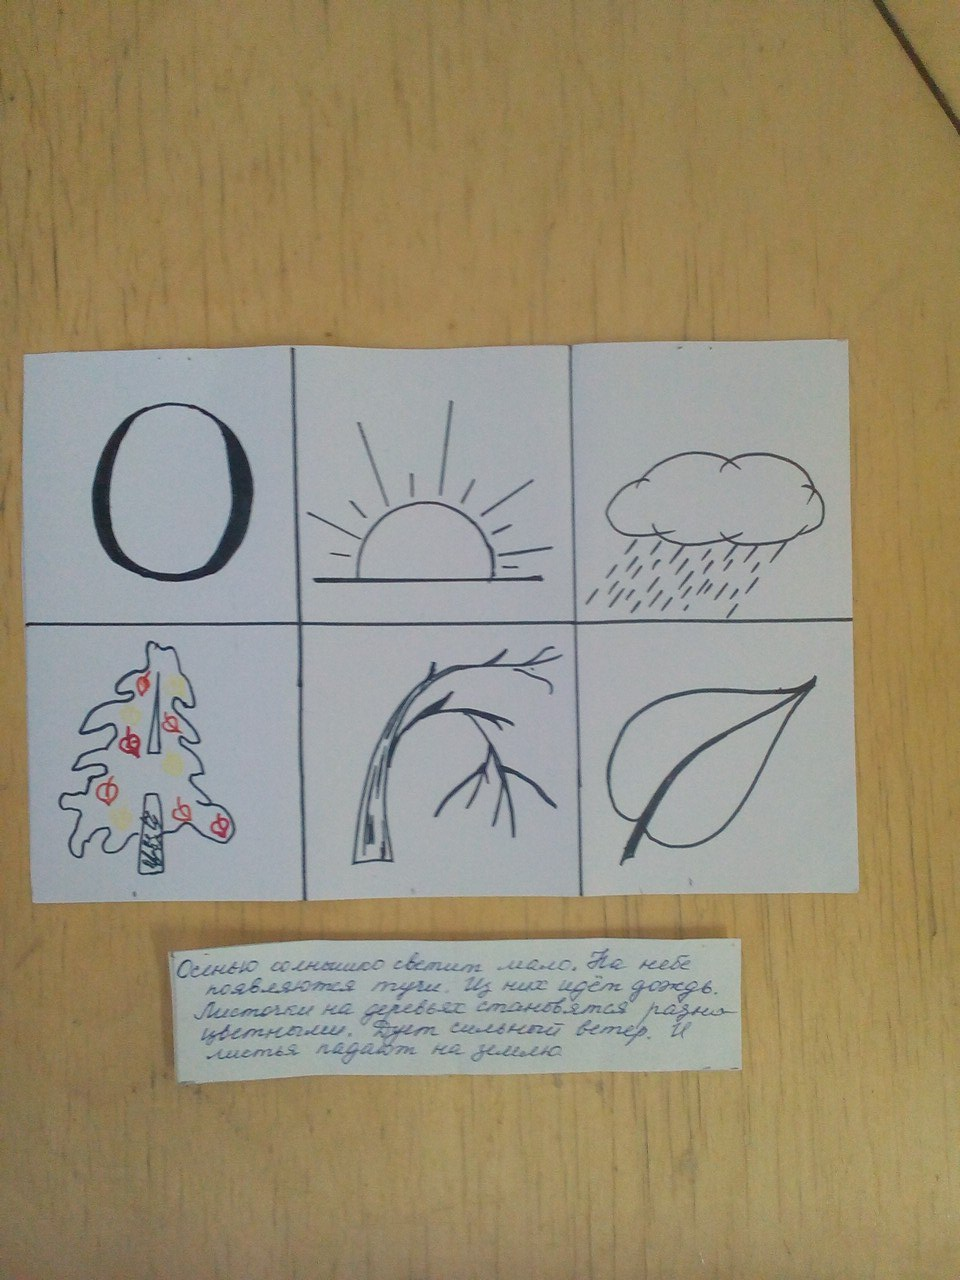 О
Осенью солнышко светит мало. На небе
появляются тучи. Из них идёт дождь.
Листочки на деревьях становятся разно-
цветными. Дует сильный ветер. И
листья падают на землю